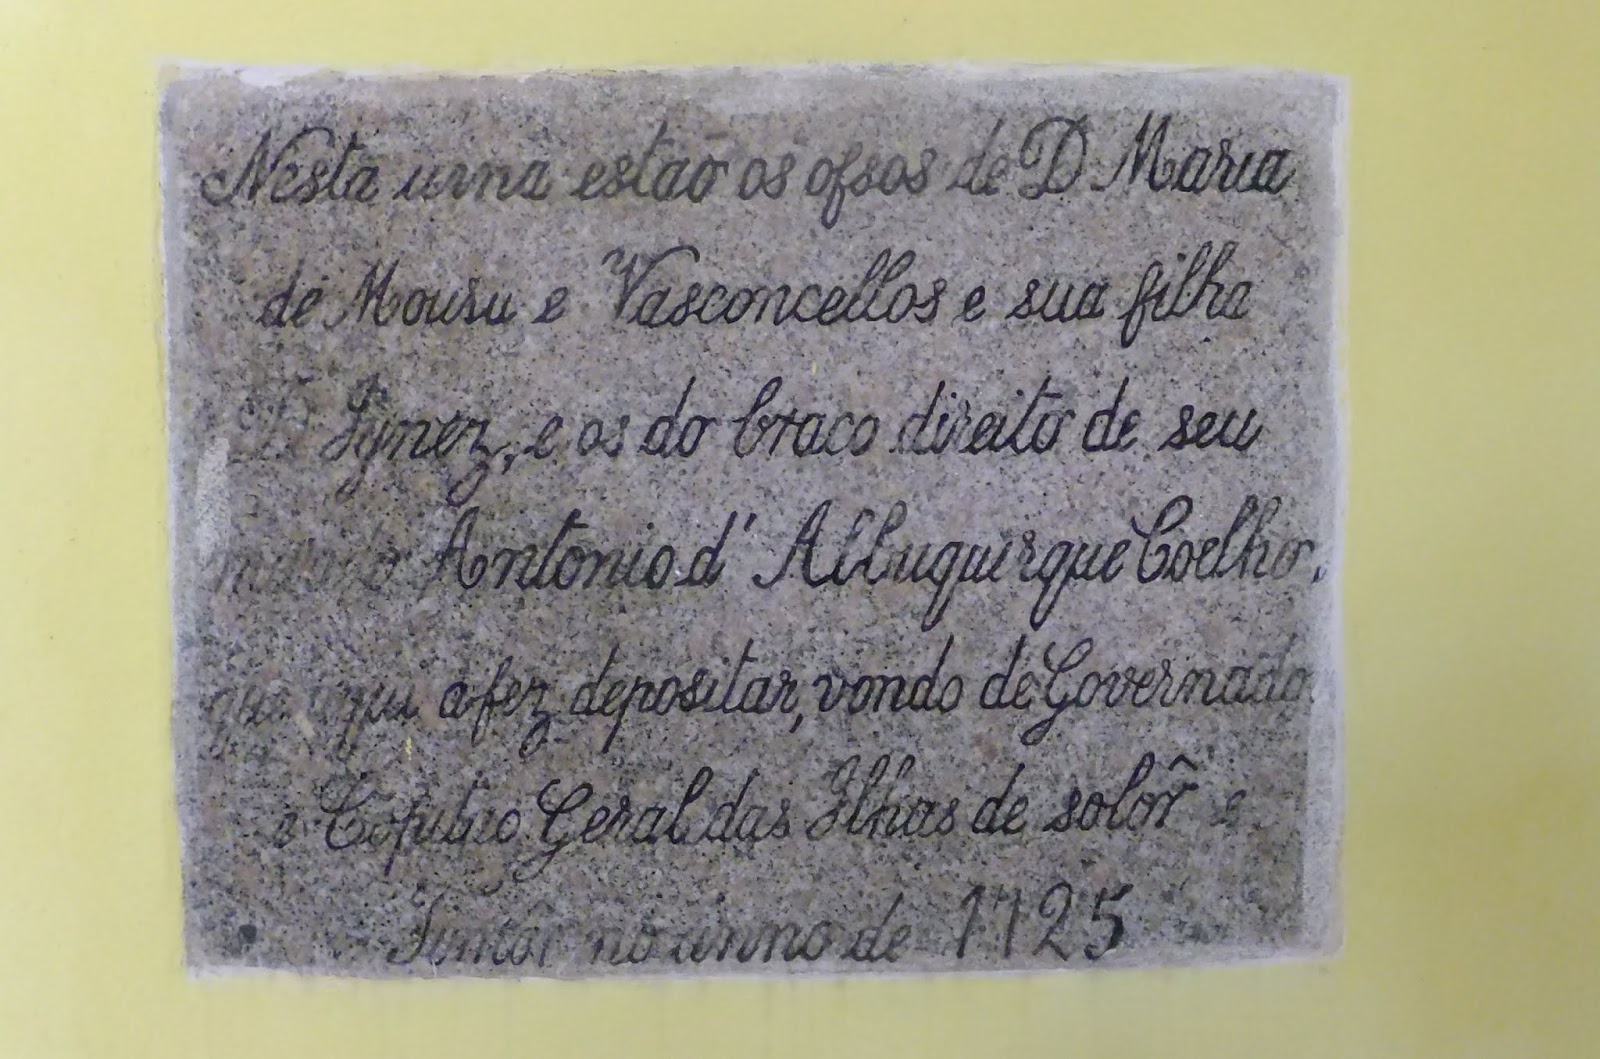 Nesta urna estão os ofsos de D Maria
de Moura e Vasconcellos e sua filha
D Ignez, e os do braco direito de seu
marido Antonio d' Albuquerque Coelho.
que aqui a fez depositar, vondo de Governado
e Capitao Geral das Ilhas de solôr e
Timor no anno de 1725